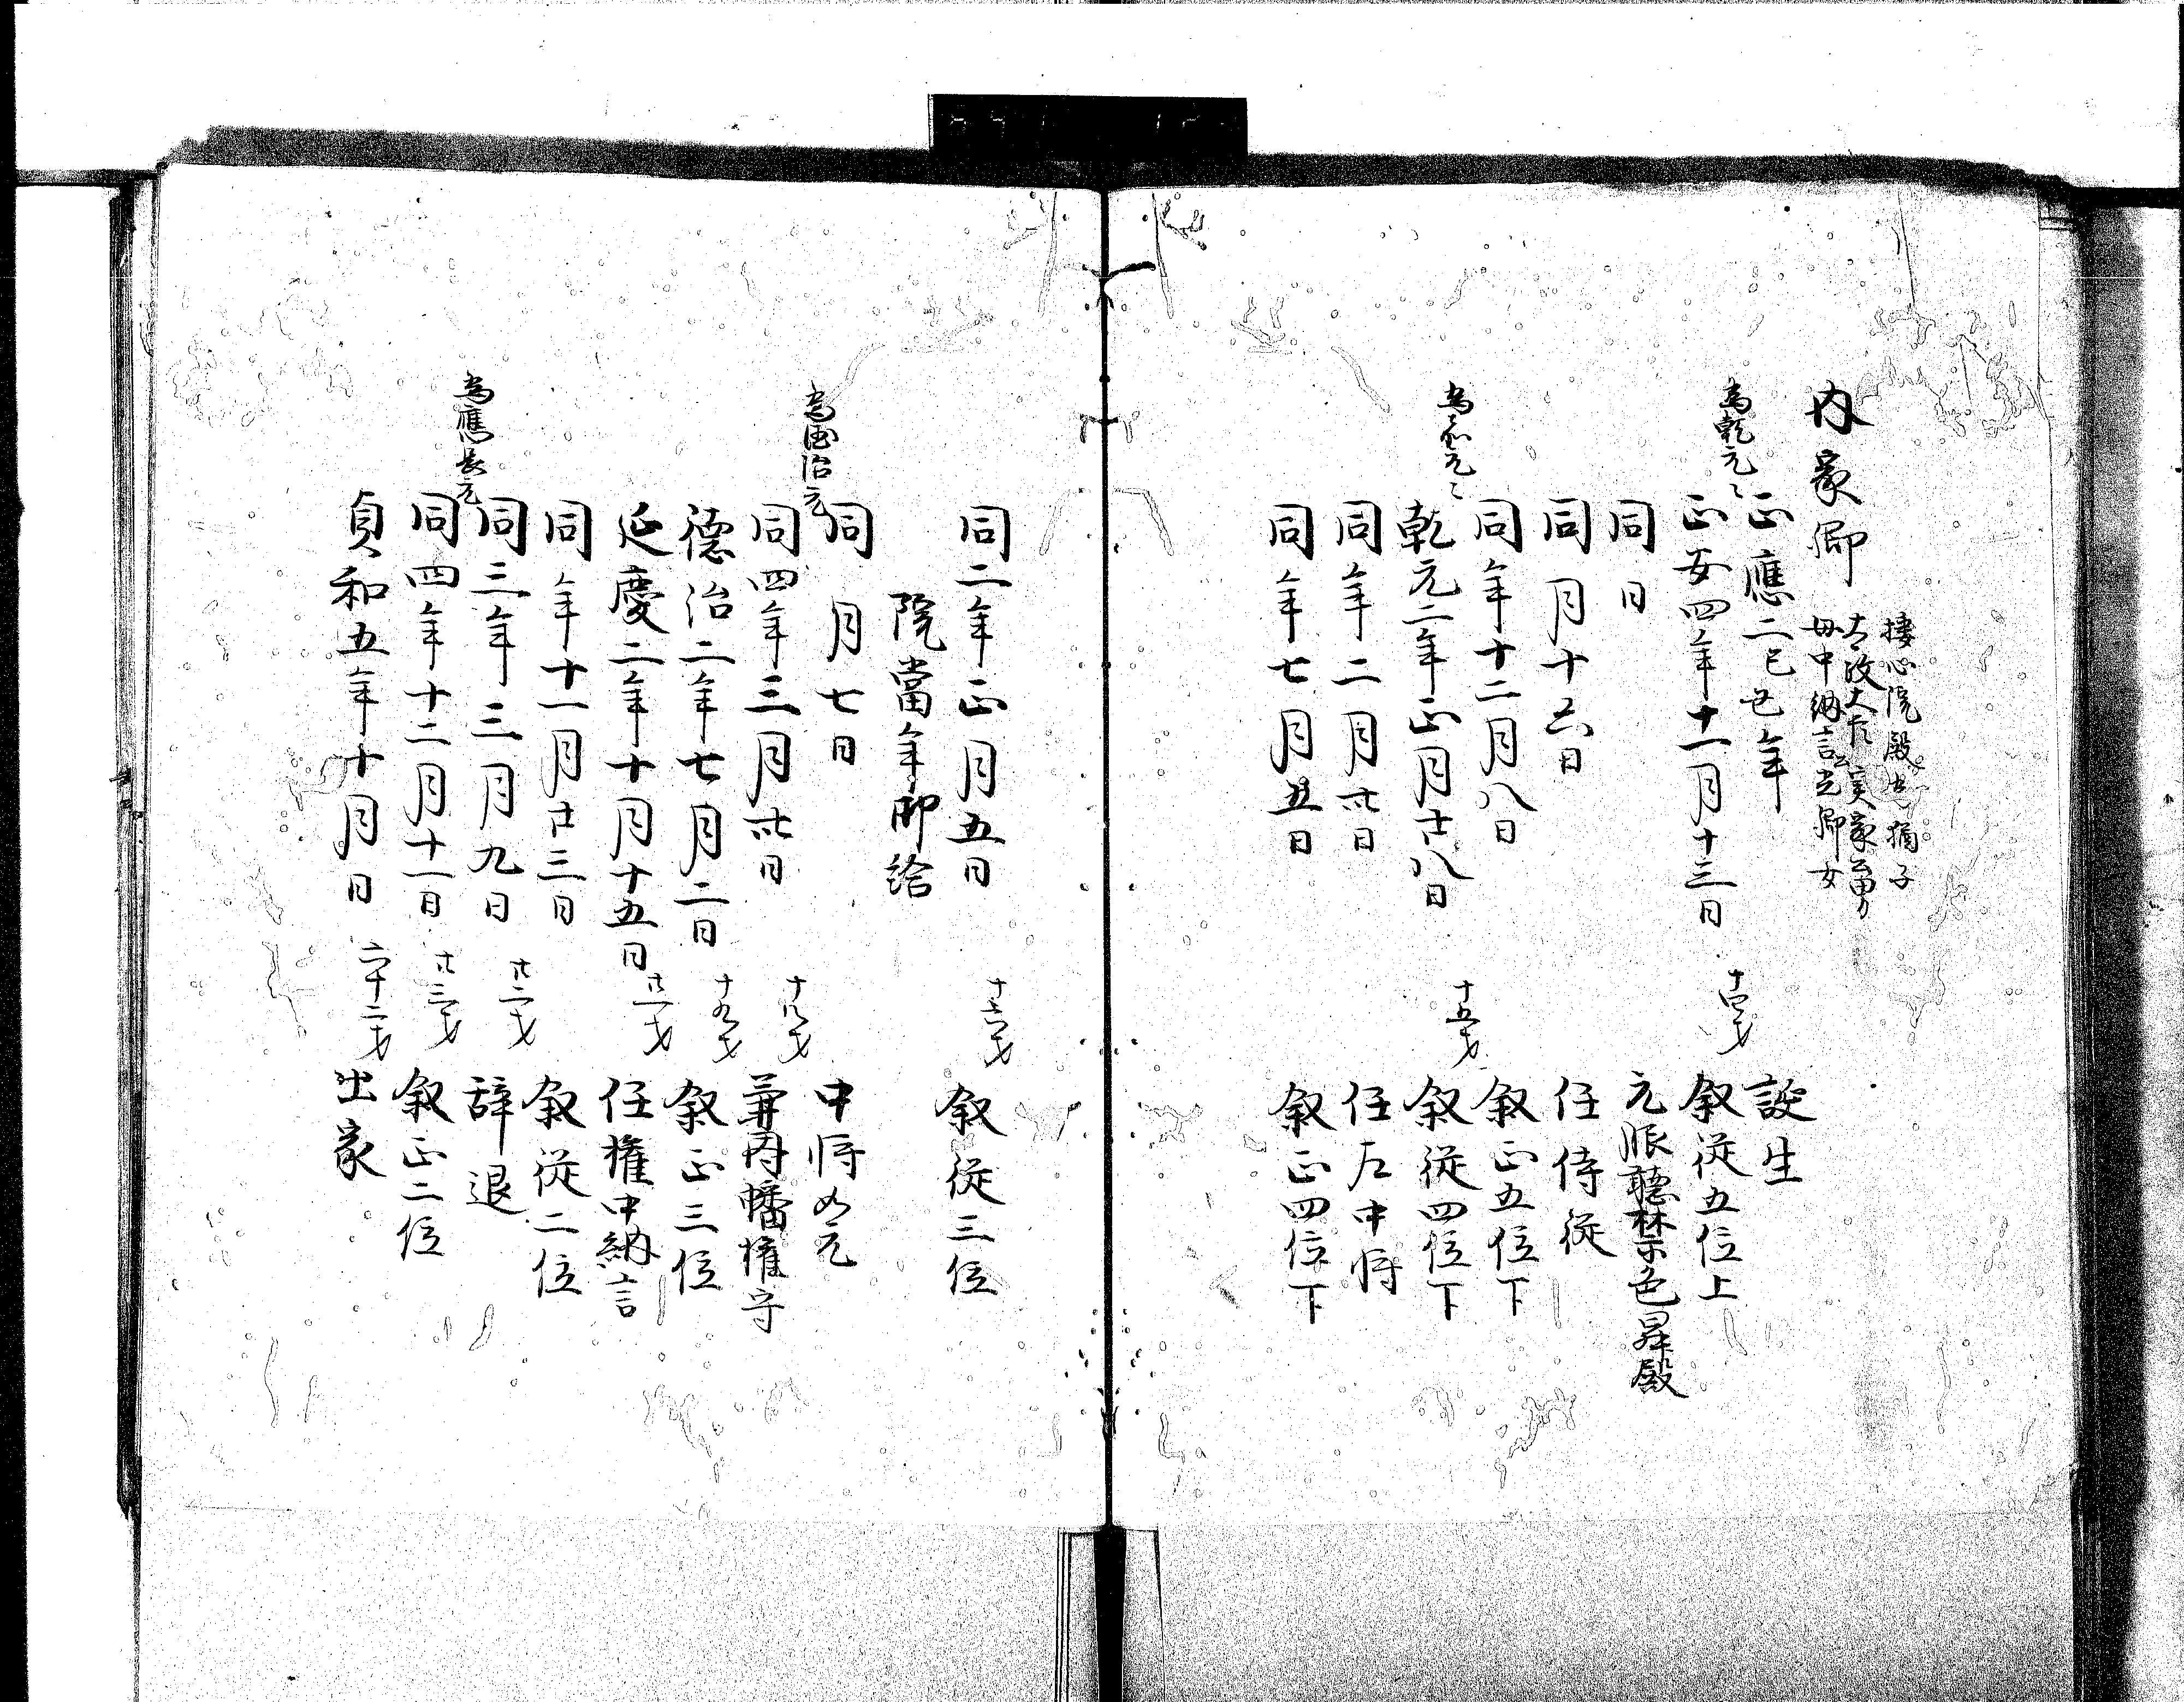 内家卿
接心院殿忠摘子
太政大臣実家五男
母中納言公光卿女
正應二己丑年 誕生
為乾元々
正安四年十一月十三日 十四才 叙従五位上
同日 元服聴禁色昇殿
同月十六日 任侍従
同年十二月八日 叙正五位下
為嘉元々
乾元二年正月廿八日 十五才 叙従四位下
同年二月卅日 任左中将
同年七月五日 叙正四位下
同二年正月五日 十六才 叙従三位
院當年御給
同月七日 中将如元
為徳治元
同四年三月卅日 十八才 兼因幡権守
徳治二年七月二日 十九才 叙正三位
延慶二年十月十五日 廿一才 任権中納言
同年十一月廿三日 叙従二位
為應長元
同三年三月九日 廿二才 辞退
同四年十二月十一日 廿三才 叙正二位
貞和五年十月日 六十二才 出家